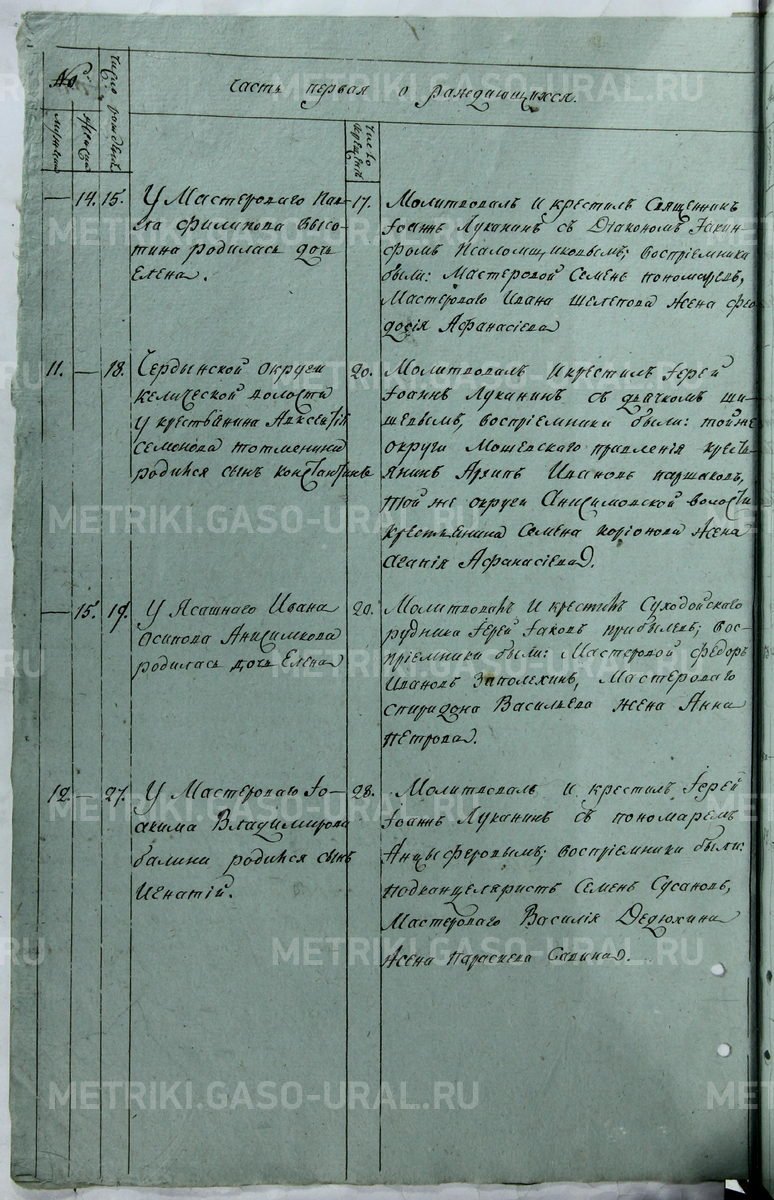 №
число рождьи
Часть первая о раждающихся.
мужеска
женска
число крещенія
— 14. 15. У Мастероваго Пав-
ла Филипова Высо-
тина родилась дочь
Елена.
17. Молитвовалъ И крестилъ Священникъ
Іоаннъ Луканинъ съ Діакономъ Іакин-
фомъ Псаломщиковымъ; воспріемники
были: Мастеровой Семенъ пономаревъ,
Мастероваго Ивана Шелепова Жена Фео-
досія Афанасіева
11. — 18. Чердынской округи
кемческой волости
у крестьянина Авксентія
Семенова потменина
родился сынъ константинъ
20. Молитвовалъ И крестилъ Іерей
Іоаннъ Луканинъ съ дьячкомъ Ши-
шевымъ, воспріемники были: той же
округи Мошевскаго правленія кресть-
янинъ Архипъ Ивановъ паршаковъ,
той же округи Анисимовской волости
крестьянина Семена Ларіонова Жена
Агапія Афанасіева.
— 15. 19. У Ясашнаго Ивана
Осипова Анисимкова
родилась дочь Елена
20. Молитвовалъ И крестилъ Суходойскаго
рудника Іерей Іаковъ прибылевъ; вос-
пріемники были: Мастеровой Федоръ
Ивановъ Заполехинъ, Мастероваго
Спиридона Васильева жена Анна
Петрова.
12. — 27. У Мастероваго Іо-
акима Владимирова
балина родился сынъ
Игнатій.
28. Молитвовалъ И крестилъ Іерей
Іоаннъ Луканинъ съ пономаремъ
Анцыферовымъ; воспріемники были:
подканцеляристъ Семенъ Сусановъ,
Мастероваго Василія Дедюхина
Жена Параскева Савина.
METRIKI.GASO-URAL.RU